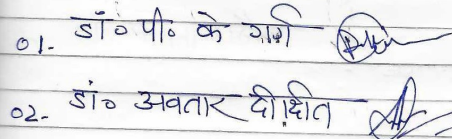 01- डॉ० पी० के गर्ग
02- डां० अवतार दीक्षीत